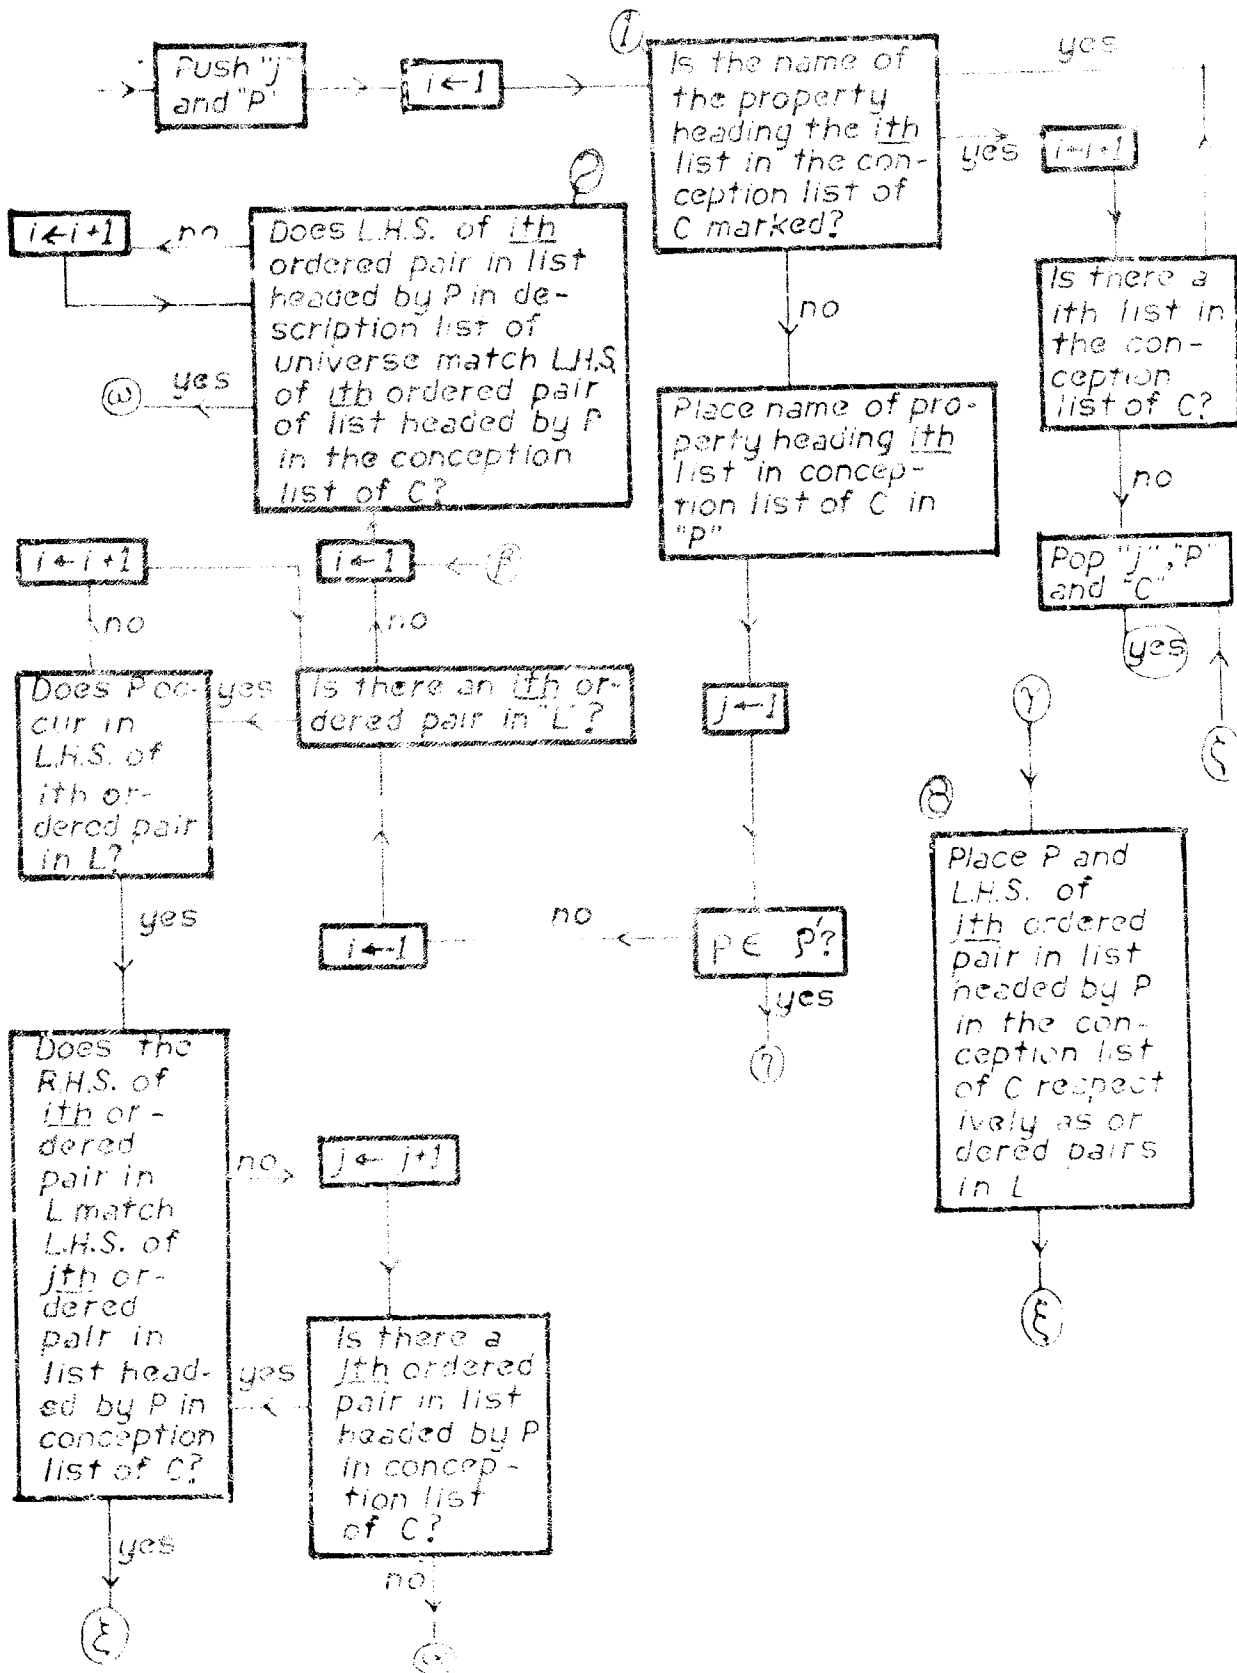 Push "j"
and "P"
i ← 1
1
Is the name of
the property
heading the ith
list in the con-
ception list of
C marked?
yes
yes
i ← i+1
Is there a
ith list in
the con-
ception
list of C?
no
Pop "j", "P"
and "C"
yes
no
Place name of pro-
perty heading ith
list in concep-
tion list of C in
"P"
j ← 1
P ∈ P'?
yes
no
i ← 1
2
Does L.H.S. of ith
ordered pair in list
headed by P in de-
scription list of
universe match L.H.S.
of ith ordered pair
of list headed by P
in the conception
list of C?
no
i ← i+1
yes
ω
i ← 1
β
no
Is there an ith or-
dered pair in "L"?
yes
i ← i+1
no
Does P oc-
cur in
L.H.S. of
ith or-
dered pair
in L?
yes
Does the
R.H.S. of
ith or-
dered
pair in
L match
L.H.S. of
jth or-
dered
pair in
list head-
ed by P in
conception
list of C?
no
j ← j+1
Is there a
jth ordered
pair in list
headed by P
in concep-
tion list
of C?
yes
no
yes
ξ
γ
8
Place P and
L.H.S. of
jth ordered
pair in list
headed by P
in the con-
ception list
of C respect
ively as or
dered pairs
in L
ξ